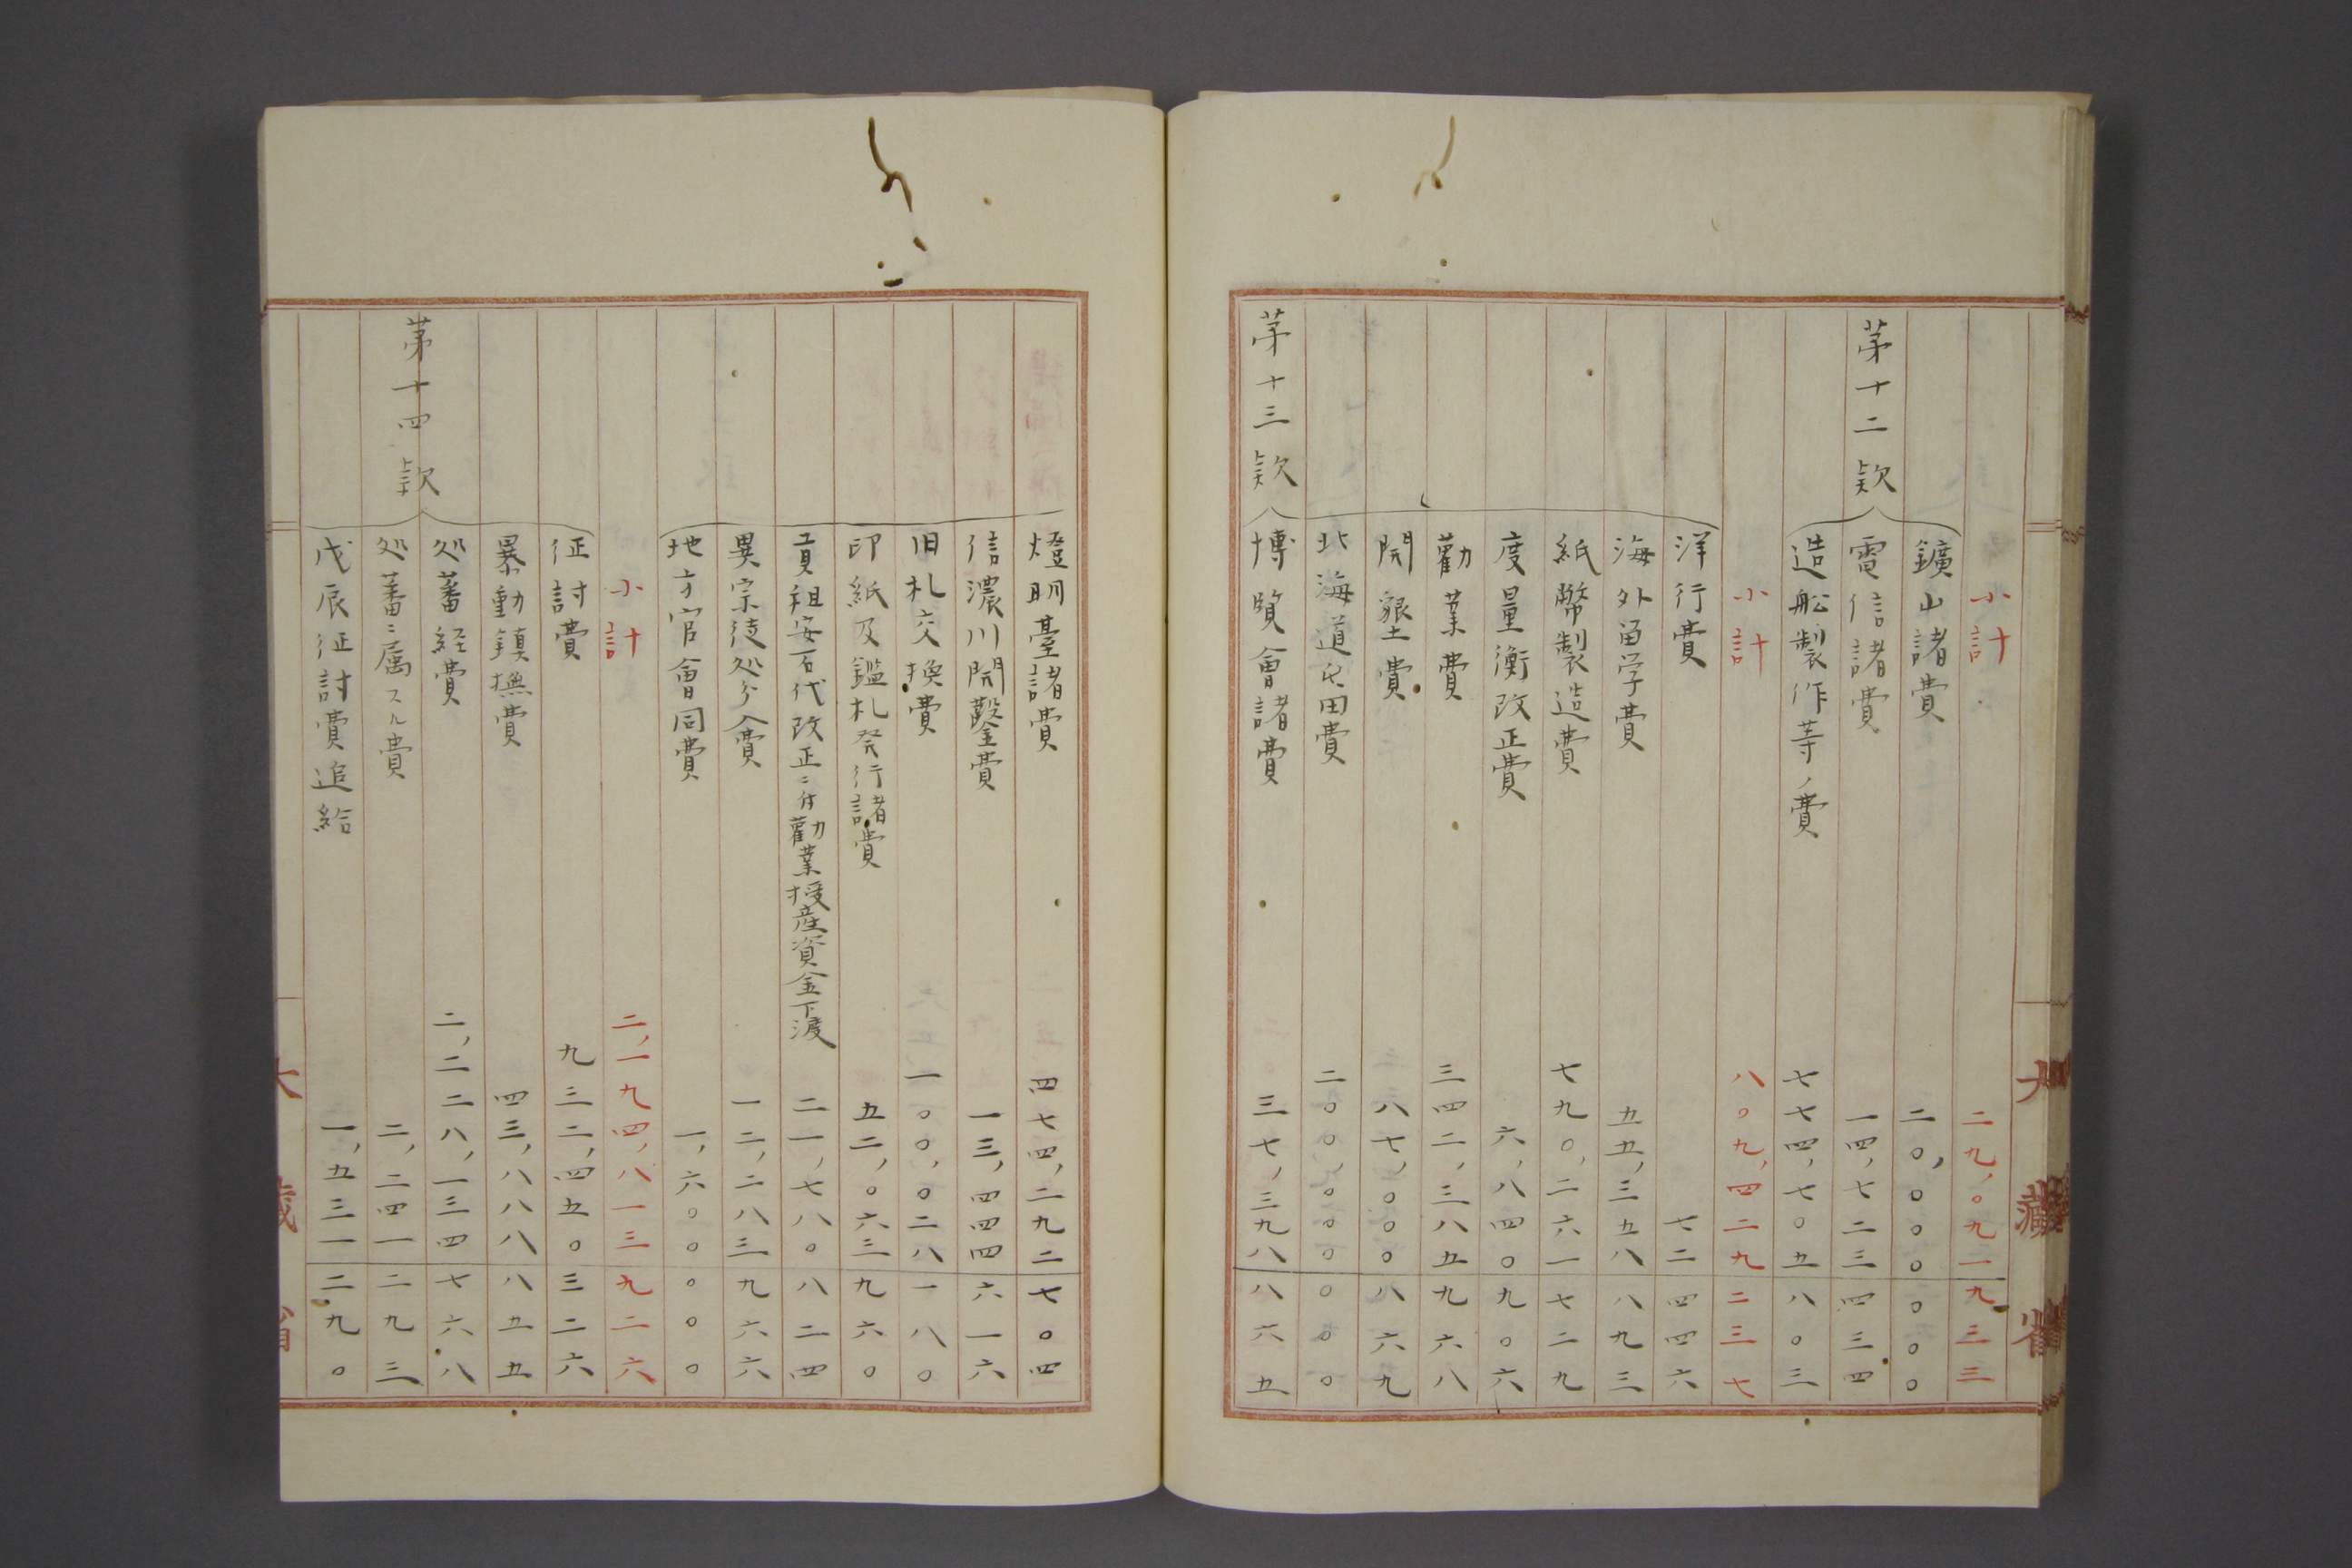 小計 二九,〇九一 九三三
鑛山諸費 二〇,〇〇〇 〇〇〇
第十二款 電信諸費 一四,七二三 四三四
造船製作等ノ費 七七四,七〇五 八〇三
小計 八〇九,四二九 二三七
洋行費 七二 四四六
海外留学費 五五,三五八 八九三
紙幣製造費 七九〇,二六一 七二九
度量衡改正費 六,八四〇 九〇六
勸業費 三四二,三八五 九六八
開墾費 八七,〇〇〇 八六九
北海道屯田費 二〇〇,〇〇〇 〇〇〇
第十三款 博覧會諸費 三七,三九八 八六五
燈明臺諸費 四七四,二九二 七〇四
信濃川開鑿費 一三,四四四 六一六
旧札交換費 一〇〇,〇二八 一八〇
印紙及鑑札発行諸費 五二,〇六三 九六〇
貢租安石代改正ニ付勸業授産資金下渡 二一,七八〇 八二四
異宗徒処分入費 一二,二八三 九六六
地方官會同費 一,六〇〇 〇〇〇
小計 二,一九四,八一三 九二六
征討費 九三二,四五〇 三二六
暴動鎮撫費 四三,八八八 八五五
第十四款 処蕃経費 二,二二八,一三四 七六八
処蕃ニ属スル費 二,二四一 二九三
戊辰征討費追給 一,五三一 二九〇
大藏省